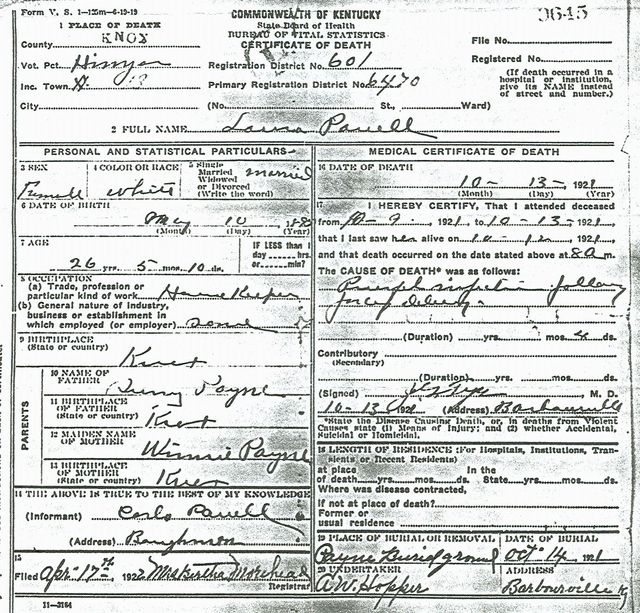 Form V. S. 1-125m-6-19-19
COMMONWEALTH OF KENTUCKY
State Board of Health
BUREAU OF VITAL STATISTICS
CERTIFICATE OF DEATH
9645
1 PLACE OF DEATH
County KNOX
Vot. Pct.
Inc. Town
City
Registration District No. 601
Primary Registration District No. 6470
(No. St., Ward)
File No.
Registered No.
(If death occurred in a hospital or institution, give its NAME instead of street and number.)
2 FULL NAME Laura Powell
PERSONAL AND STATISTICAL PARTICULARS
3 SEX Femell
4 COLOR OR RACE White
5 Single Married Widowed or Divorced (Write the word) married
6 DATE OF BIRTH
May 10
(Month) (Day) (Year)
7 AGE
26 yrs. 5 mos. 10 ds.
IF LESS than 1 day hrs. or min?
8 OCCUPATION
(a) Trade, profession or particular kind of work House Keeper
(b) General nature of industry, business or establishment in which employed (or employer) same
9 BIRTHPLACE
(State or country) Knox
PARENTS
10 NAME OF FATHER Payne
11 BIRTHPLACE OF FATHER (State or country) Knox
12 MAIDEN NAME OF MOTHER Winnie Payne
13 BIRTHPLACE OF MOTHER (State or country) Knox
14 THE ABOVE IS TRUE TO THE BEST OF MY KNOWLEDGE
(Informant) Powell
(Address) Baughman
15
Filed Apr-17th, 1922 Mrs Bertha Morehead
Registrar
11-3184
MEDICAL CERTIFICATE OF DEATH
16 DATE OF DEATH
10 13 1921
(Month) (Day) (Year)
17 I HEREBY CERTIFY, That I attended deceased
from 10-9, 1921, to 10-13-, 1921,
that I last saw her alive on 10-12, 1921,
and that death occurred on the date stated above at 8 a m.
The CAUSE OF DEATH* was as follows:
(Duration) yrs. mos. 4 ds.
Contributory
(Secondary)
(Duration) yrs. mos. ds.
(Signed) M. D.
10-13 1921 (Address) Barbourville
*State the Disease Causing Death, or, in deaths from Violent Causes state (1) Means of Injury; and (2) whether Accidental, Suicidal or Homicidal.
18 LENGTH OF RESIDENCE (For Hospitals, Institutions, Transients or Recent Residents)
at place of death yrs. mos. ds. In the State yrs. mos. ds.
Where was disease contracted,
If not at place of death?
Former or usual residence
19 PLACE OF BURIAL OR REMOVAL Payne Burial ground
DATE OF BURIAL Oct 14, 1921
20 UNDERTAKER A.W. Hopper
ADDRESS Barbourville Ky